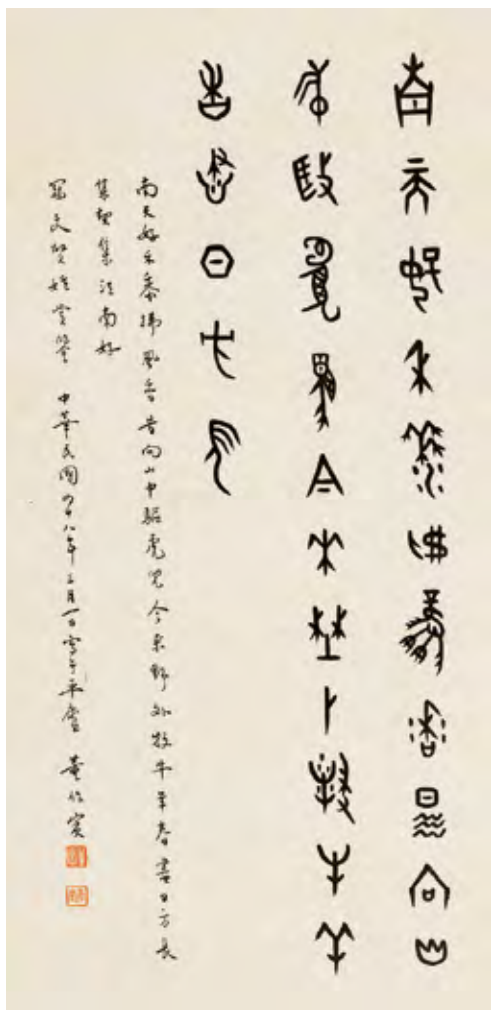 南天好禾黍拂風香昔向山
中驅虎兕今來野外牧牛羊
春晝日方長
南天好禾黍拂風香昔向山中驅虎兕今來野外牧牛羊春晝日方長
集契集江南好
文賢姪 中華民國四十八年三月一日 於平廬 董作賓